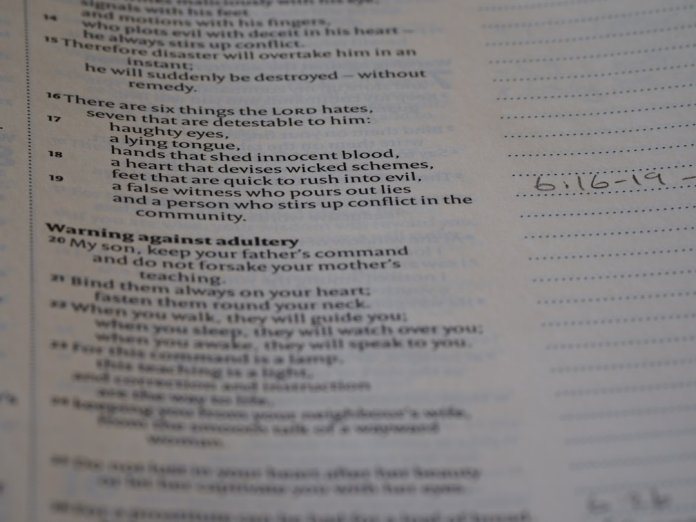 signals with his feet
14 and motions with his fingers,
who plots evil with deceit in his heart –
he always stirs up conflict.
15 Therefore disaster will overtake him in an
instant;
he will suddenly be destroyed – without
remedy.
16 There are six things the LORD hates,
17 seven that are detestable to him:
haughty eyes,
a lying tongue,
hands that shed innocent blood,
18 a heart that devises wicked schemes,
feet that are quick to rush into evil,
19 a false witness who pours out lies
and a person who stirs up conflict in the
community.
6:16-19 -
Warning against adultery
20 My son, keep your father's command
and do not forsake your mother's
teaching.
21 Bind them always on your heart;
fasten them round your neck.
22 When you walk, they will guide you;
when you sleep, they will watch over you;
when you awake, they will speak to you.
23 For this command is a lamp,
this teaching is a light,
and correction and instruction
are the way to life,
keeping you from your neighbour's wife,
from the smooth talk of a wayward
woman.